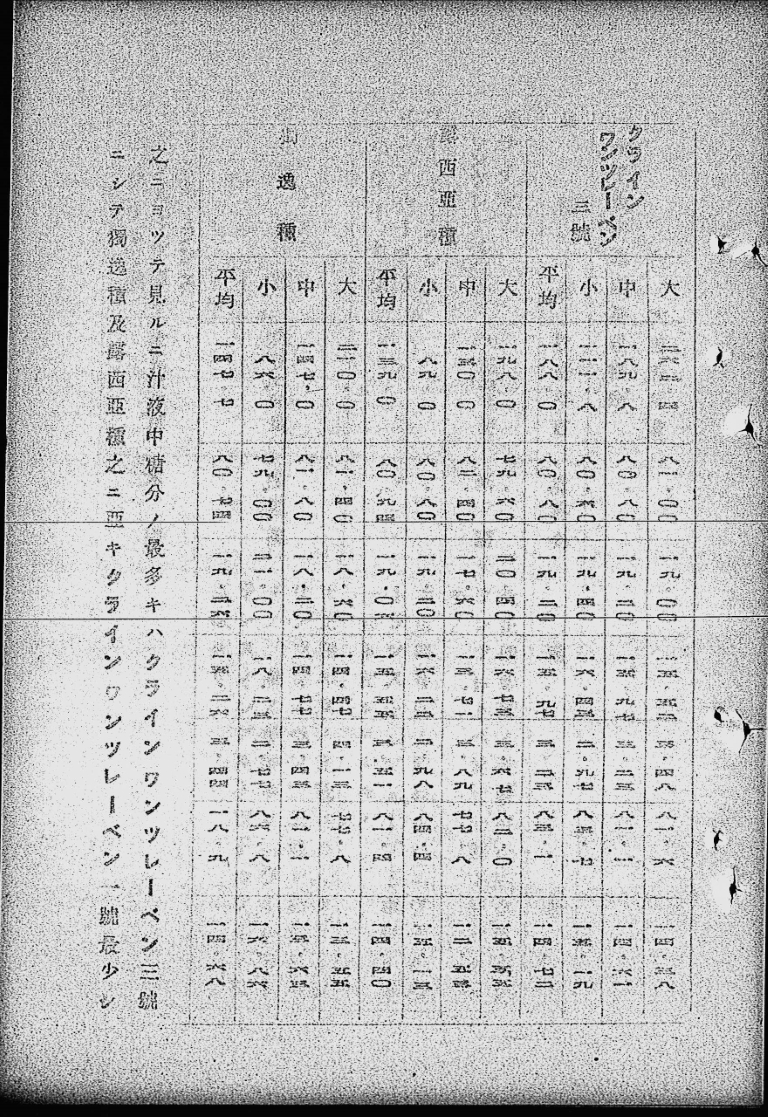 クライン
ワンツレーベン
三號
大 二六二・四 八一・〇〇 一九・〇〇 一五・五二 三・四八 八一・六 一四・三八
中 一八九・八 八〇・八〇 一九・二〇 一五・九七 三・二三 一四・六一
小 一一一・八 八〇・六〇 一九・四〇 一六・四三 二・九七 一五・一九
平均 一八八・〇 八〇・八〇 一九・二〇 一五・九七 三・二三 八三・一 一四・七二
露西亞種
大 一九八・〇 七九・六〇 二〇・四〇 一六・七三 三・六七 八二・〇
中 一三〇・〇 八二・四〇 一七・六〇 一三・七一 三・八九 七七・八 一二・五五
小 八九・〇 八〇・八〇 一九・二〇 一六・二二 二・九八 八四・四 一五・一三
平均 一三九・〇 八〇・九四 一九・〇六 一五・五五 三・五一 八一・四 一四・四〇
獨逸種
大 二一〇・〇 八一・四〇 一八・六〇 一四・四七 四・一三 七七・八 一三・五五
中 一四七・〇 八一・八〇 一八・二〇 一四・七七 三・四三 八一・一 一三・六三
小 八六・〇 七九・〇〇 二一・〇〇 一八・二三 二・七七 八六・八 一六・八六
平均 一四七・七 八〇・七四 一九・二六 三・四四 一八・九 一四・六八
之ニヨツテ見ルニ汁液中糖分ノ最多キハクラインワンツレーベン三號
ニシテ獨逸種及露西亞種之ニ亞キクラインワンツレーベン一號最少シ